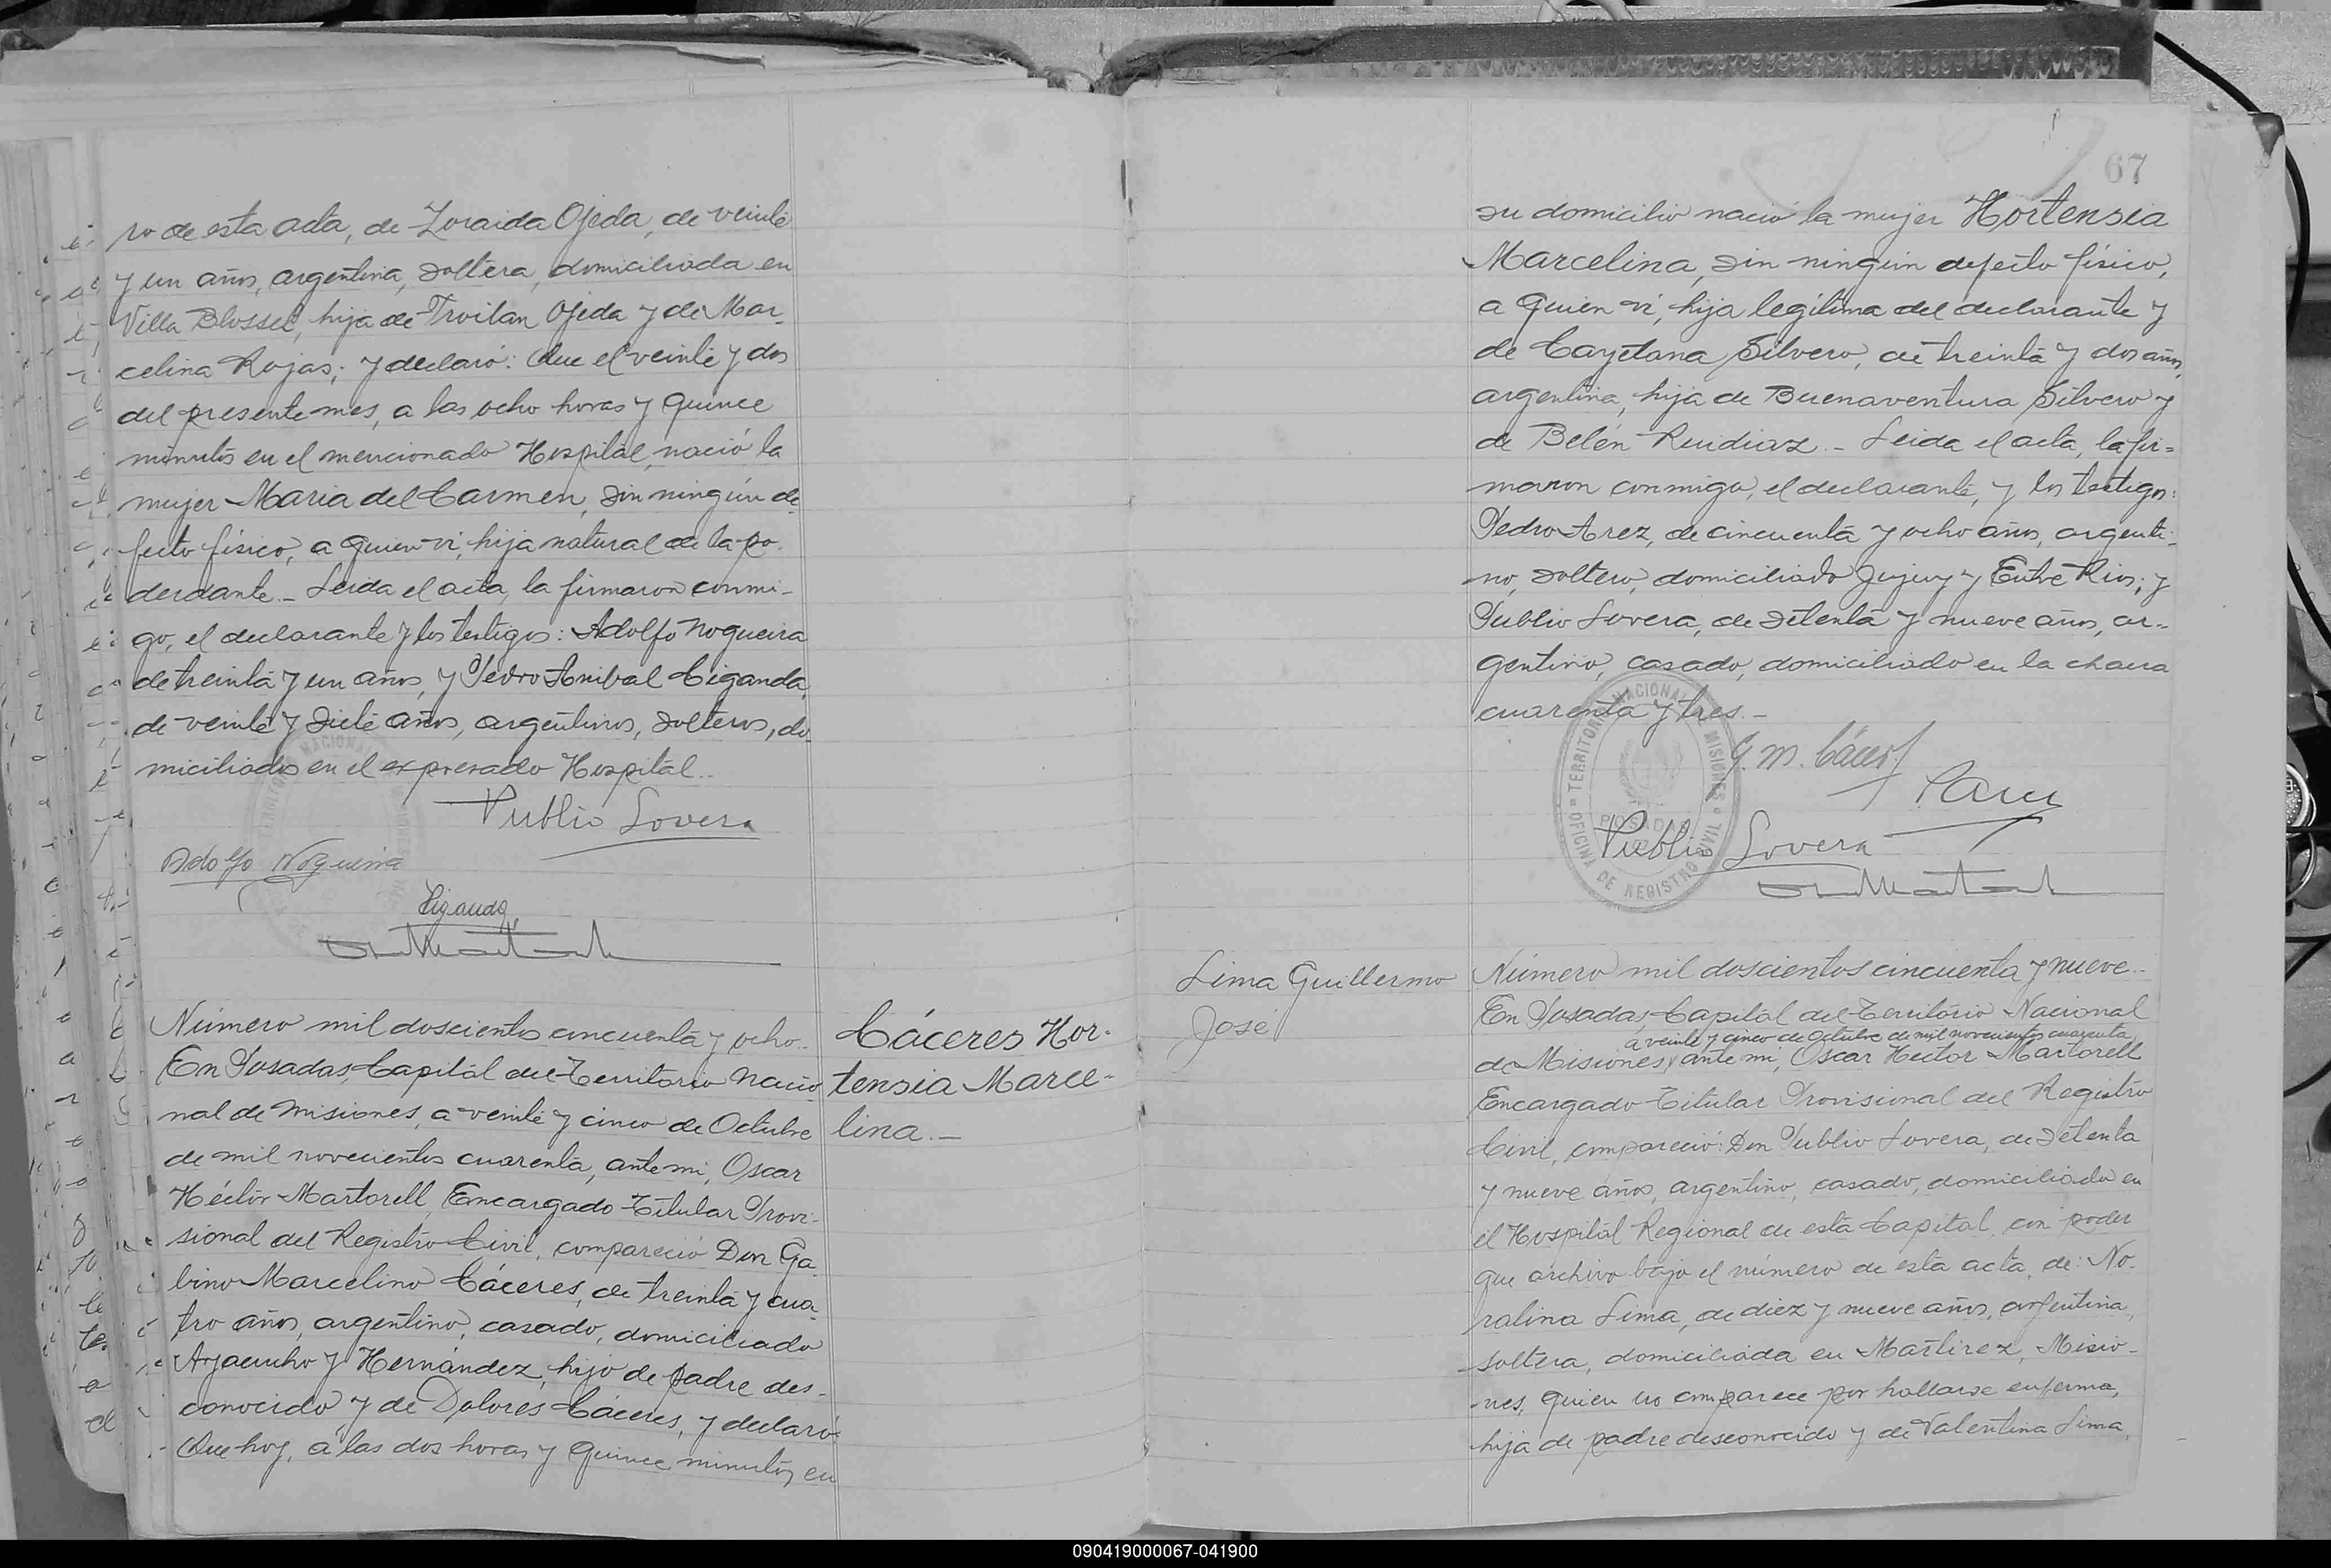 ro de esta acta, de Zoraida Ojeda, de veinte
y un años, argentina, soltera, domiciliada en
Villa Blosset, hija de Troilan Ojeda y de Mar-
celina Rojas; y declaró: Que el veinte y dos
del presente mes, a las ocho horas y quince
minutos en el mencionado Hospital, nació la
mujer Maria del Carmen, sin ningún de-
fecto físico, a quien vi, hija natural de la po-
derdante.- Leida el acta, la firmaron conmi-
go, el declarante y los testigos: Adolfo Nogueira
de treinta y un años, y Pedro Anibal Ciganda,
de veinte y siete años, argentinos, solteros, do-
miciliados en el expresado Hospital.-
Publio Lovera
Adolfo Nogueira
Ciganda
Número mil doscientos cincuenta y ocho.-
En Posadas, Capital del Territorio Nacio-
nal de Misiones, a veinte y cinco de Octubre
de mil novecientos cuarenta, ante mi, Oscar
Héctor Martorell, Encargado Titular Provi-
sional del Registro Civil, compareció Don Ga-
bino Marcelino Cáceres, de treinta y cua-
tro años, argentino, casado, domiciliado
Ayacucho y Hernández, hijo de padre des-
conocido y de Dolores Cáceres, y declaró:
Que hoy, a las dos horas y quince minutos, en
Cáceres Hor-
tensia Marce-
lina.-
67
su domicilio nació la mujer Hortensia
Marcelina, sin ningún defecto físico,
a quien vi, hija legítima del declarante y
de Cayetana Silvero, de treinta y dos años,
argentina, hija de Buenaventura Silvero y
de Belén Ruidiaz.- Leida el acta, la fir=
maron conmigo, el declarante, y los testigos:
Pedro Arez, de cincuenta y ocho años, argenti-
no, soltero, domiciliado Jujuy y Entre Rios; y
Publio Lovera, de setenta y nueve años, ar-
gentino, casado, domiciliado en la chacra
cuarenta y tres.-
TERRITORIO NACIONAL MISIONES
POSADAS
OFICINA DE REGISTRO CIVIL
G. M. Cáceres
Publio Lovera
Lima Guillermo
José
Número mil doscientos cincuenta y nueve.-
En Posadas, Capital del Territorio Nacional
a veinte y cinco de Octubre de mil novecientos cuarenta
de Misiones, ante mi, Oscar Hector Martorell
Encargado Titular Provisional del Registro
Civil, compareció: Don Publio Lovera, de setenta
y nueve años, argentino, casado, domiciliado en
el Hospital Regional de esta Capital, con poder
que archivo bajo el número de esta acta, de: No-
ralina Lima, de diez y nueve años, argentina,
soltera, domiciliada en Martirez, Misio-
nes, quien no comparece por hallarse enferma,
hija de padre desconocido y de Valentina Lima,
090419000067-041900